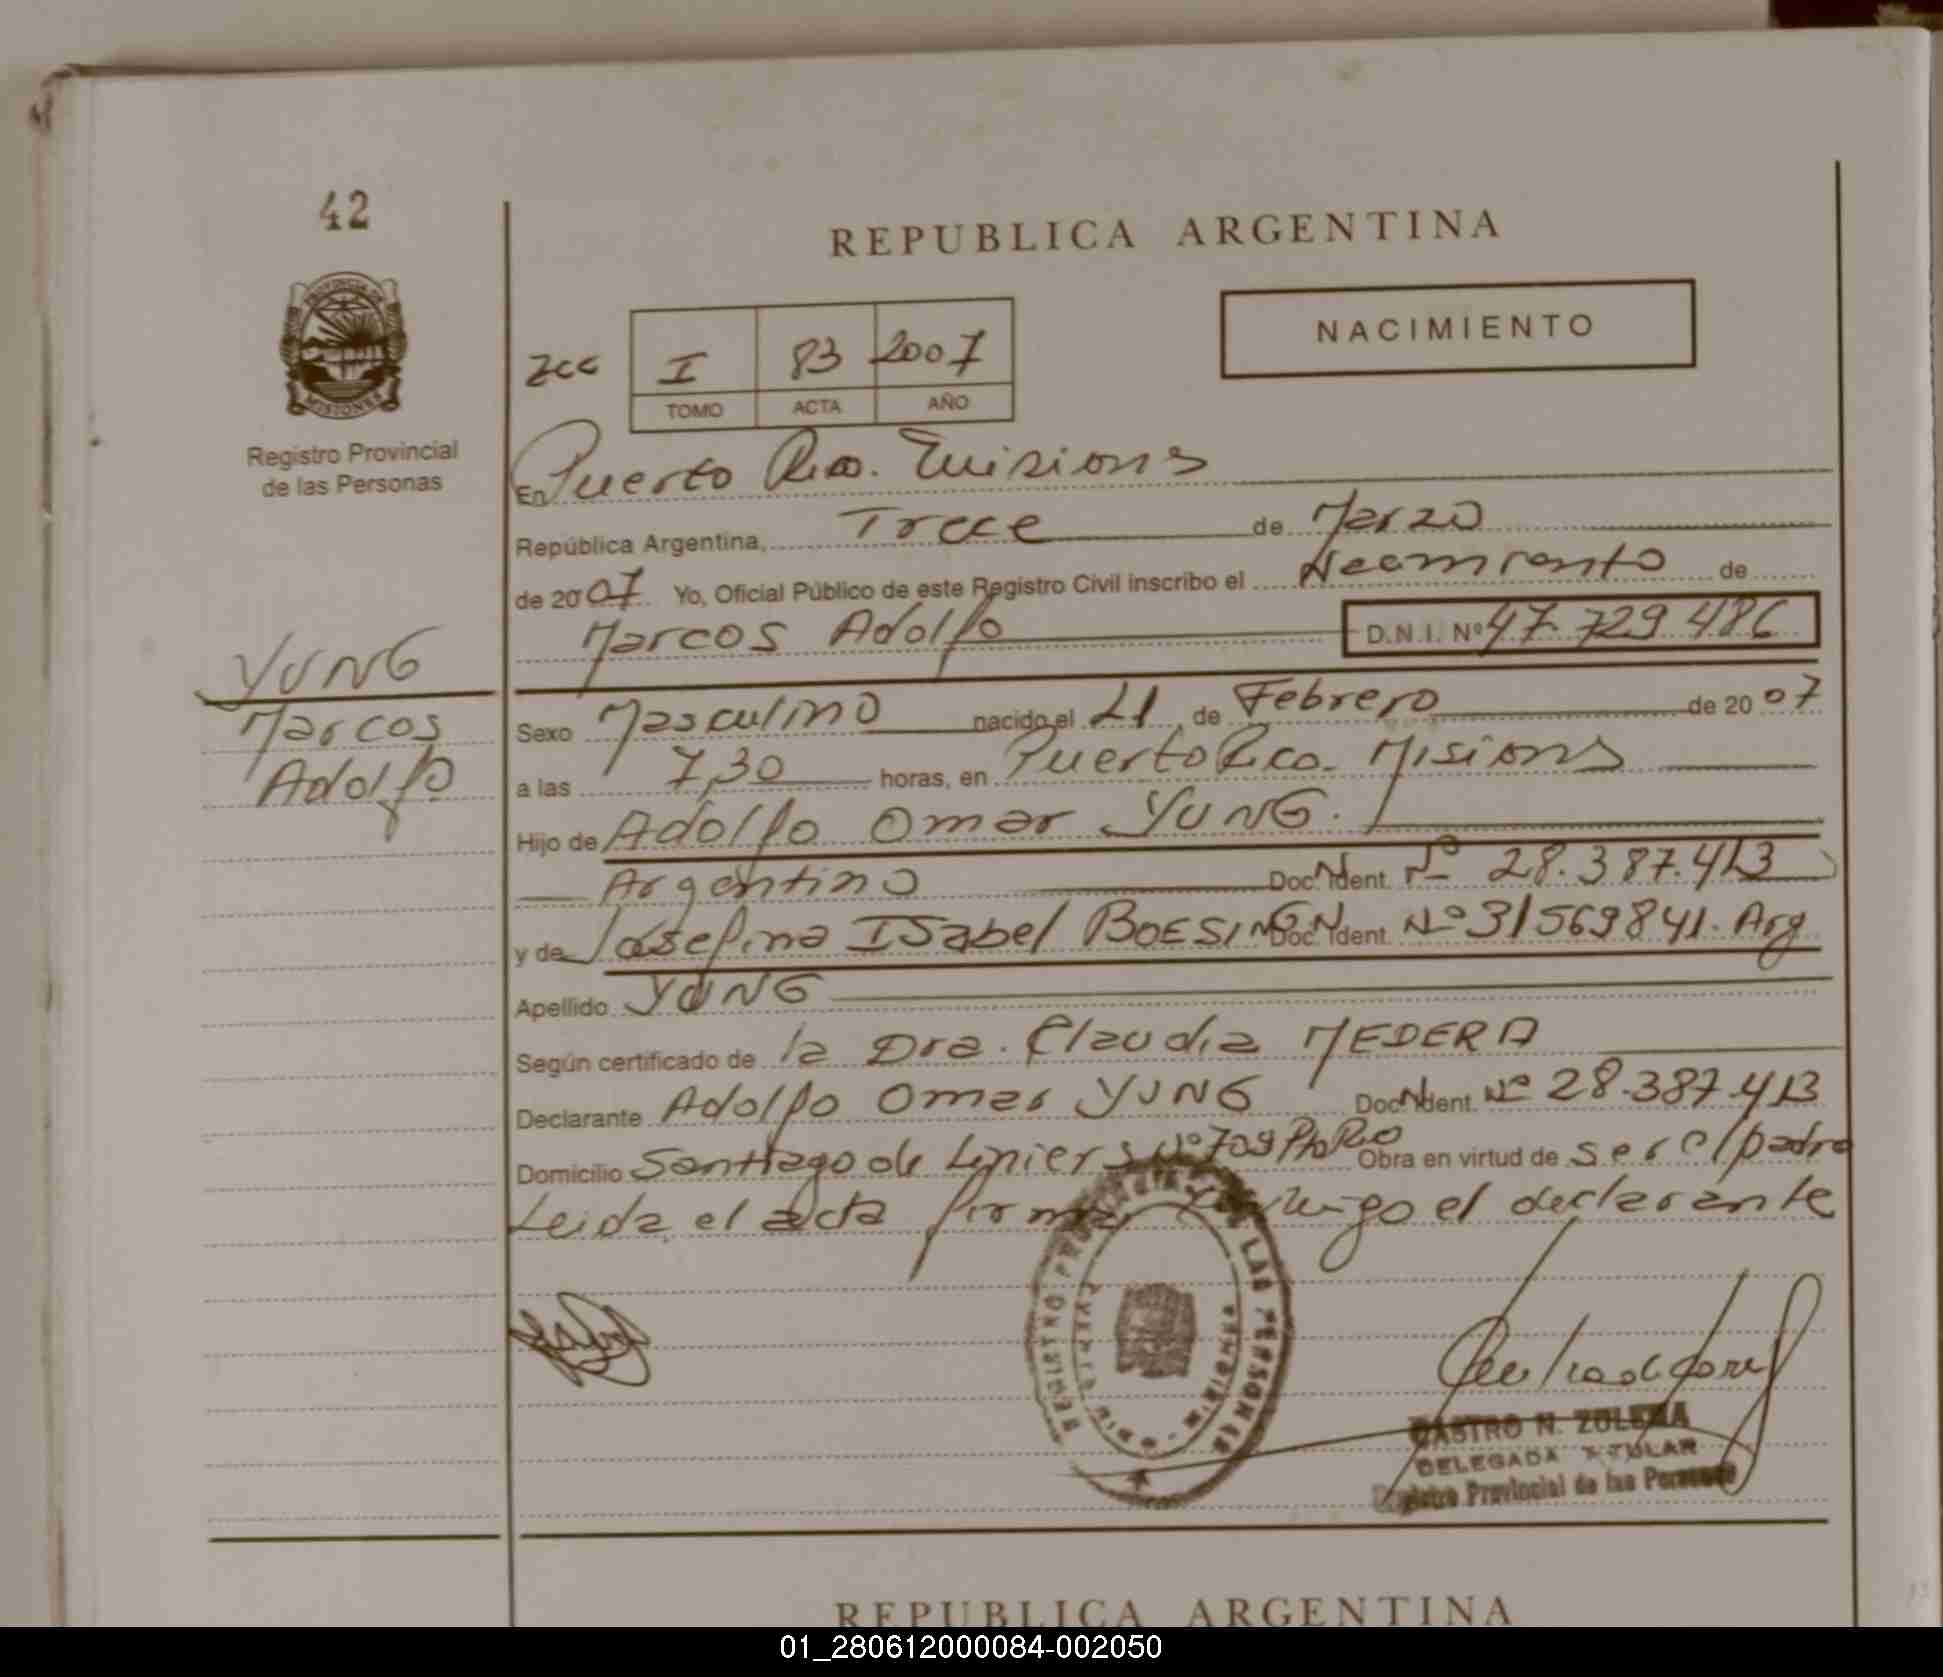 42
REPUBLICA ARGENTINA
NACIMIENTO
PROVINCIA DE
MISIONES
Registro Provincial
de las Personas
Zcc I 83 2007
TOMO ACTA AÑO
En Puerto Rico. Misiones
República Argentina, Trece de Marzo
de 2007 Yo, Oficial Público de este Registro Civil inscribo el Nacimiento de
Marcos Adolfo D.N.I. Nº 47.729.486
YUNG
Marcos
Adolfo
Sexo Masculino nacido el 21 de Febrero de 2007
a las 7,30 horas, en Puerto Rico. Misiones
Hijo de Adolfo Omar YUNG.
Argentino Doc. Ident. Nº 28.387.413
y de Josefina ISabel BOESING Doc. Ident. Nº 31569841. Arg
Apellido YUNG
Según certificado de la Dra. Claudia MEDERA
Declarante Adolfo Omar YUNG Doc. Ident. Nº 28.387.413
Domicilio Santiago de Liniers Nº 709 Pto Rico Obra en virtud de ser el padre
Leida el acta firma conmigo el declarante
REGISTRO PROVINCIAL DE LAS PERSONAS
CASTRO N. ZULEMA
DELEGADA TITULAR
Registro Provincial de las Personas
REPUBLICA ARGENTINA
01_280612000084-002050